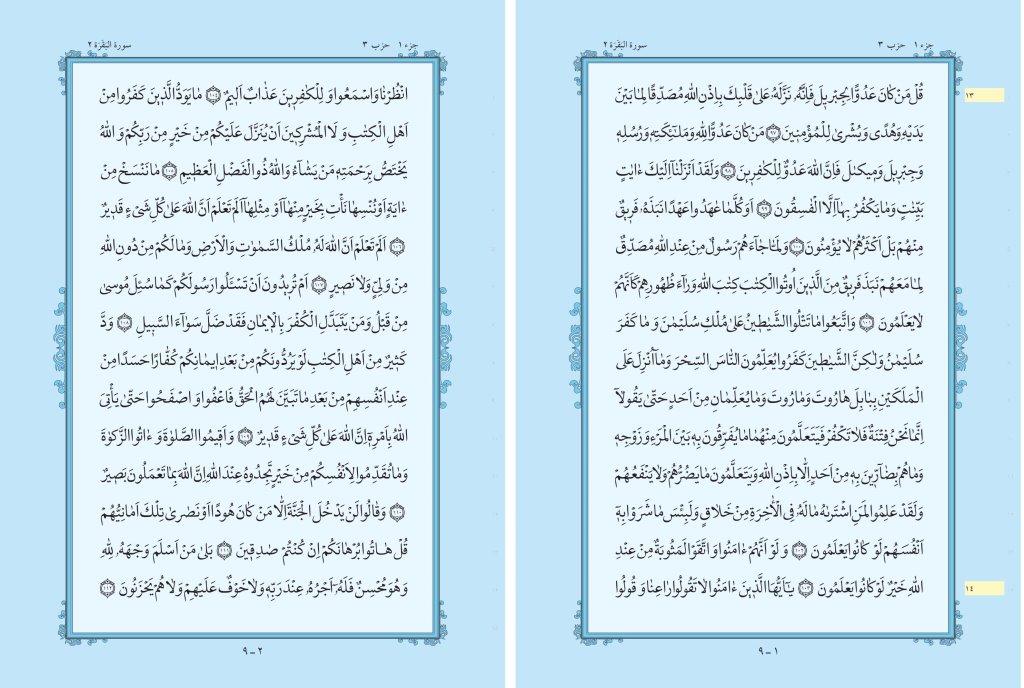 جزء ١ حزب ٣
سورة البَقَرَة ٢
١٣
قُلْ مَنْ كَانَ عَدُوًّا لِجِبْرِيلَ فَاِنَّهُ نَزَّلَهُ عَلٰى قَلْبِكَ بِاِذْنِ اللّٰهِ مُصَدِّقًا لِمَا بَيْنَ
يَدَيْهِ وَهُدًى وَبُشْرٰى لِلْمُؤْمِنِينَ ۝٩٧ مَنْ كَانَ عَدُوًّا لِلّٰهِ وَمَلٰٓئِكَتِهِ وَرُسُلِهِ
وَجِبْرِيلَ وَمِيكٰىلَ فَاِنَّ اللّٰهَ عَدُوٌّ لِلْكٰفِرِينَ ۝٩٨ وَلَقَدْ اَنْزَلْنَٓا اِلَيْكَ ءَايٰتٍ
بَيِّنٰتٍ وَمَا يَكْفُرُ بِهَٓا اِلَّا الْفٰسِقُونَ ۝٩٩ اَوَكُلَّمَا عٰهَدُوا عَهْدًا نَبَذَهُ فَرِيقٌ
مِنْهُمْ بَلْ اَكْثَرُهُمْ لَا يُؤْمِنُونَ ۝١٠٠ وَلَمَّا جَٓاءَهُمْ رَسُولٌ مِنْ عِنْدِ اللّٰهِ مُصَدِّقٌ
لِمَا مَعَهُمْ نَبَذَ فَرِيقٌ مِنَ الَّذِينَ اُوتُوا الْكِتٰبَ كِتٰبَ اللّٰهِ وَرَٓاءَ ظُهُورِهِمْ كَاَنَّهُمْ
لَا يَعْلَمُونَ ۝١٠١ وَاتَّبَعُوا مَا تَتْلُوا الشَّيٰطِينُ عَلٰى مُلْكِ سُلَيْمٰنَ وَمَا كَفَرَ
سُلَيْمٰنُ وَلٰكِنَّ الشَّيٰطِينَ كَفَرُوا يُعَلِّمُونَ النَّاسَ السِّحْرَ وَمَٓا اُنْزِلَ عَلَى
الْمَلَكَيْنِ بِبَابِلَ هَارُوتَ وَمَارُوتَ وَمَا يُعَلِّمَانِ مِنْ اَحَدٍ حَتّٰى يَقُولَٓا
اِنَّمَا نَحْنُ فِتْنَةٌ فَلَا تَكْفُرْ فَيَتَعَلَّمُونَ مِنْهُمَا مَا يُفَرِّقُونَ بِهِ بَيْنَ الْمَرْءِ وَزَوْجِهِ
وَمَا هُمْ بِضَٓارِّينَ بِهِ مِنْ اَحَدٍ اِلَّا بِاِذْنِ اللّٰهِ وَيَتَعَلَّمُونَ مَا يَضُرُّهُمْ وَلَا يَنْفَعُهُمْ
وَلَقَدْ عَلِمُوا لَمَنِ اشْتَرٰىهُ مَا لَهُ فِي الْاٰخِرَةِ مِنْ خَلَاقٍ وَلَبِئْسَ مَا شَرَوْا بِهِ
اَنْفُسَهُمْ لَوْ كَانُوا يَعْلَمُونَ ۝١٠٢ وَلَوْ اَنَّهُمْ ءَامَنُوا وَاتَّقَوْا لَمَثُوبَةٌ مِنْ عِنْدِ
اللّٰهِ خَيْرٌ لَوْ كَانُوا يَعْلَمُونَ ۝١٠٣ يَٓا اَيُّهَا الَّذِينَ ءَامَنُوا لَا تَقُولُوا رَاعِنَا وَقُولُوا
١٤
٩ – ١
جزء ١ حزب ٣
سورة البَقَرَة ٢
انْظُرْنَا وَاسْمَعُوا وَ لِلْكٰفِرِينَ عَذَابٌ اَلِيمٌ ۝١٠٤ مَا يَوَدُّ الَّذِينَ كَفَرُوا مِنْ
اَهْلِ الْكِتٰبِ وَلَا الْمُشْرِكِينَ اَنْ يُنَزَّلَ عَلَيْكُمْ مِنْ خَيْرٍ مِنْ رَبِّكُمْ وَاللّٰهُ
يَخْتَصُّ بِرَحْمَتِهِ مَنْ يَشَٓاءُ وَاللّٰهُ ذُو الْفَضْلِ الْعَظِيمِ ۝١٠٥ مَا نَنْسَخْ مِنْ
ءَايَةٍ اَوْ نُنْسِهَا نَأْتِ بِخَيْرٍ مِنْهَٓا اَوْ مِثْلِهَٓا اَلَمْ تَعْلَمْ اَنَّ اللّٰهَ عَلٰى كُلِّ شَيْءٍ قَدِيرٌ
۝١٠٦ اَلَمْ تَعْلَمْ اَنَّ اللّٰهَ لَهُ مُلْكُ السَّمٰوٰتِ وَالْاَرْضِ وَمَا لَكُمْ مِنْ دُونِ اللّٰهِ
مِنْ وَلِيٍّ وَلَا نَصِيرٍ ۝١٠٧ اَمْ تُرِيدُونَ اَنْ تَسْـَٔلُوا رَسُولَكُمْ كَمَا سُئِلَ مُوسٰى
مِنْ قَبْلُ وَمَنْ يَتَبَدَّلِ الْكُفْرَ بِالْاِيمَانِ فَقَدْ ضَلَّ سَوَٓاءَ السَّبِيلِ ۝١٠٨ وَدَّ
كَثِيرٌ مِنْ اَهْلِ الْكِتٰبِ لَوْ يَرُدُّونَكُمْ مِنْ بَعْدِ اِيمَانِكُمْ كُفَّارًا حَسَدًا مِنْ
عِنْدِ اَنْفُسِهِمْ مِنْ بَعْدِ مَا تَبَيَّنَ لَهُمُ الْحَقُّ فَاعْفُوا وَاصْفَحُوا حَتّٰى يَأْتِيَ
اللّٰهُ بِاَمْرِهِ اِنَّ اللّٰهَ عَلٰى كُلِّ شَيْءٍ قَدِيرٌ ۝١٠٩ وَاَقِيمُوا الصَّلٰوةَ وَءَاتُوا الزَّكٰوةَ
وَمَا تُقَدِّمُوا لِاَنْفُسِكُمْ مِنْ خَيْرٍ تَجِدُوهُ عِنْدَ اللّٰهِ اِنَّ اللّٰهَ بِمَا تَعْمَلُونَ بَصِيرٌ
۝١١٠ وَقَالُوا لَنْ يَدْخُلَ الْجَنَّةَ اِلَّا مَنْ كَانَ هُودًا اَوْ نَصٰرٰى تِلْكَ اَمَانِيُّهُمْ
قُلْ هَاتُوا بُرْهَانَكُمْ اِنْ كُنْتُمْ صٰدِقِينَ ۝١١١ بَلٰى مَنْ اَسْلَمَ وَجْهَهُ لِلّٰهِ
وَهُوَ مُحْسِنٌ فَلَهُ اَجْرُهُ عِنْدَ رَبِّهِ وَلَا خَوْفٌ عَلَيْهِمْ وَلَا هُمْ يَحْزَنُونَ ۝١١٢
٩ – ٢